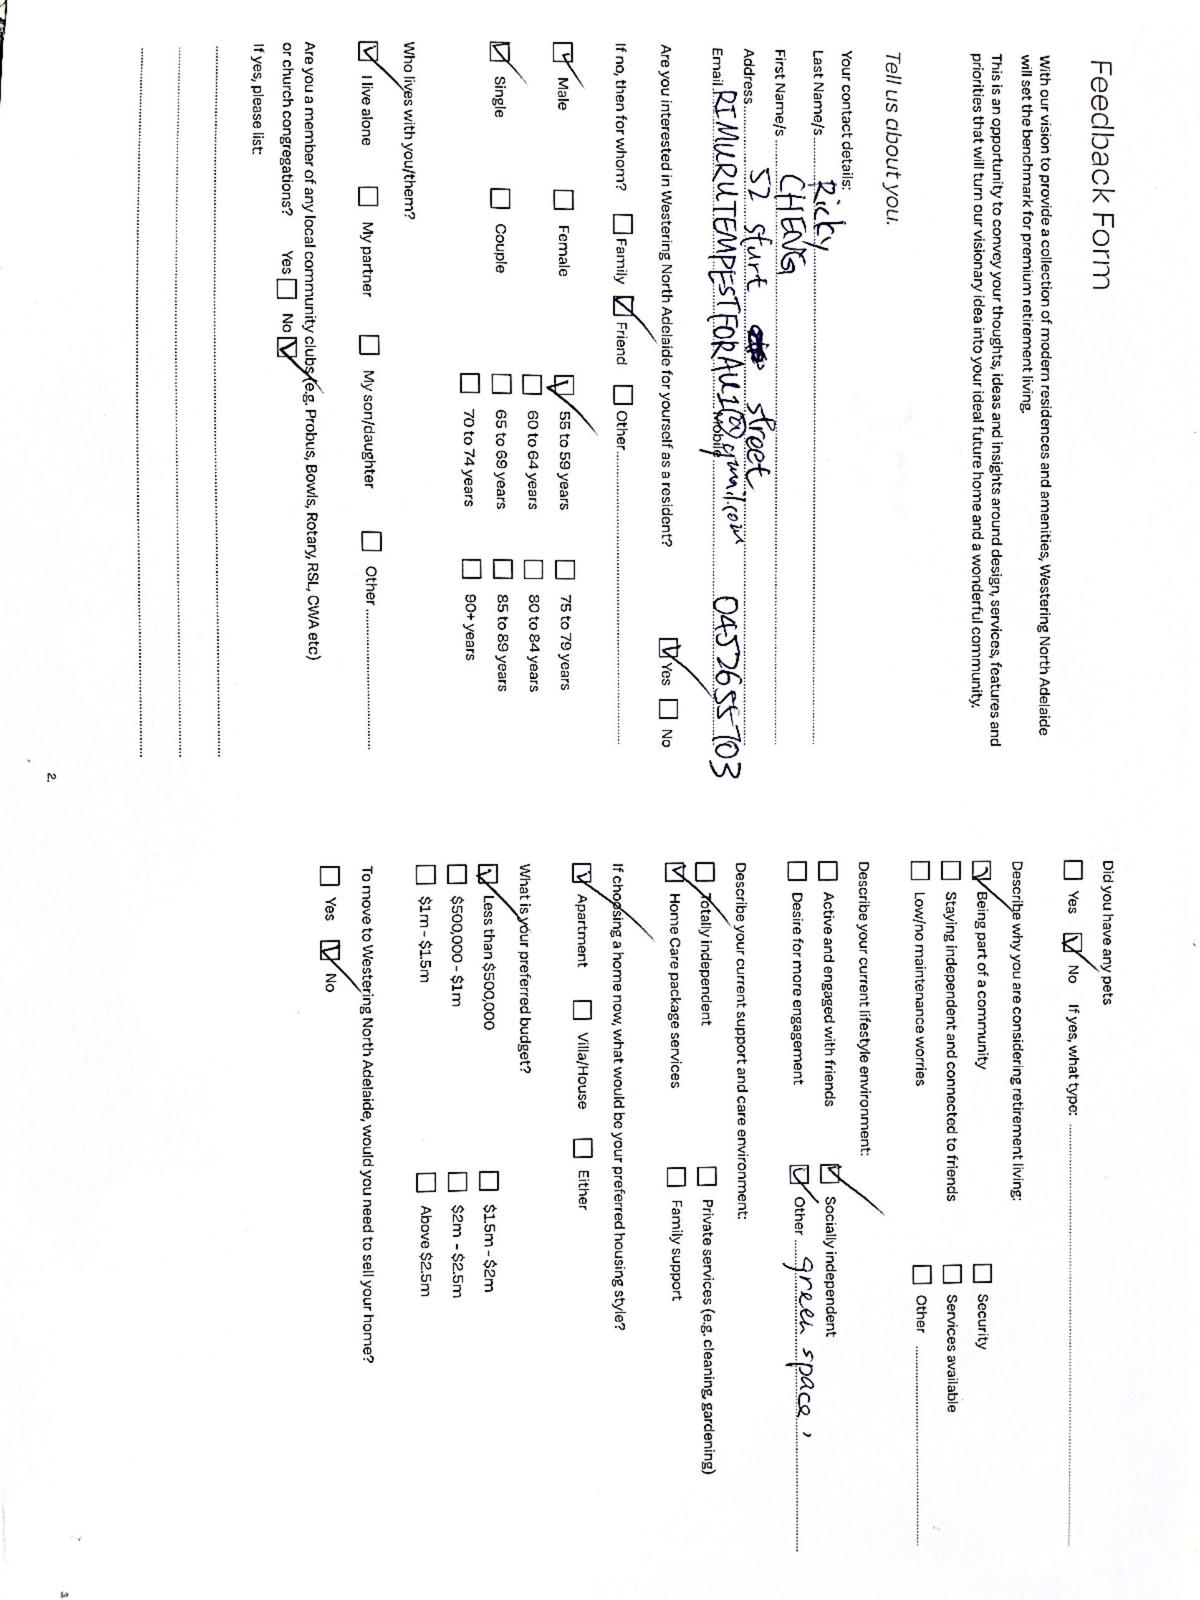 Feedback Form
With our vision to provide a collection of modern residences and amenities, Westering North Adelaide
will set the benchmark for premium retirement living.
This is an opportunity to convey your thoughts, ideas and insights around design, services, features and
priorities that will turn our visionary idea into your ideal future home and a wonderful community.
Tell us about you.
Your contact details:
Last Name/s Ricky
First Name/s CHENG
Address 52 sturt street
Email RIMURUTEMPESTFORALL1@gmail.com Mobile 0452655703
Are you interested in Westering North Adelaide for yourself as a resident? Yes No
If no, then for whom? Family Friend Other
Male Female 55 to 59 years 75 to 79 years
60 to 64 years 80 to 84 years
Single Couple 65 to 69 years 85 to 89 years
70 to 74 years 90+ years
Who lives with you/them?
I live alone My partner My son/daughter Other
Are you a member of any local community clubs (e.g. Probus, Bowls, Rotary, RSL, CWA etc)
or church congregations? Yes No
If yes, please list:
2.
Did you have any pets
Yes No If yes, what type:
Describe why you are considering retirement living:
Being part of a community Security
Staying independent and connected to friends Services available
Low/no maintenance worries Other
Describe your current lifestyle environment:
Active and engaged with friends Socially independent
Desire for more engagement Other green space,
Describe your current support and care environment:
Totally independent Private services (e.g. cleaning, gardening)
Home Care package services Family support
If choosing a home now, what would be your preferred housing style?
Apartment Villa/House Either
What is your preferred budget?
Less than $500,000 $1.5m - $2m
$500,000 - $1m $2m - $2.5m
$1m - $1.5m Above $2.5m
To move to Westering North Adelaide, would you need to sell your home?
Yes No
3